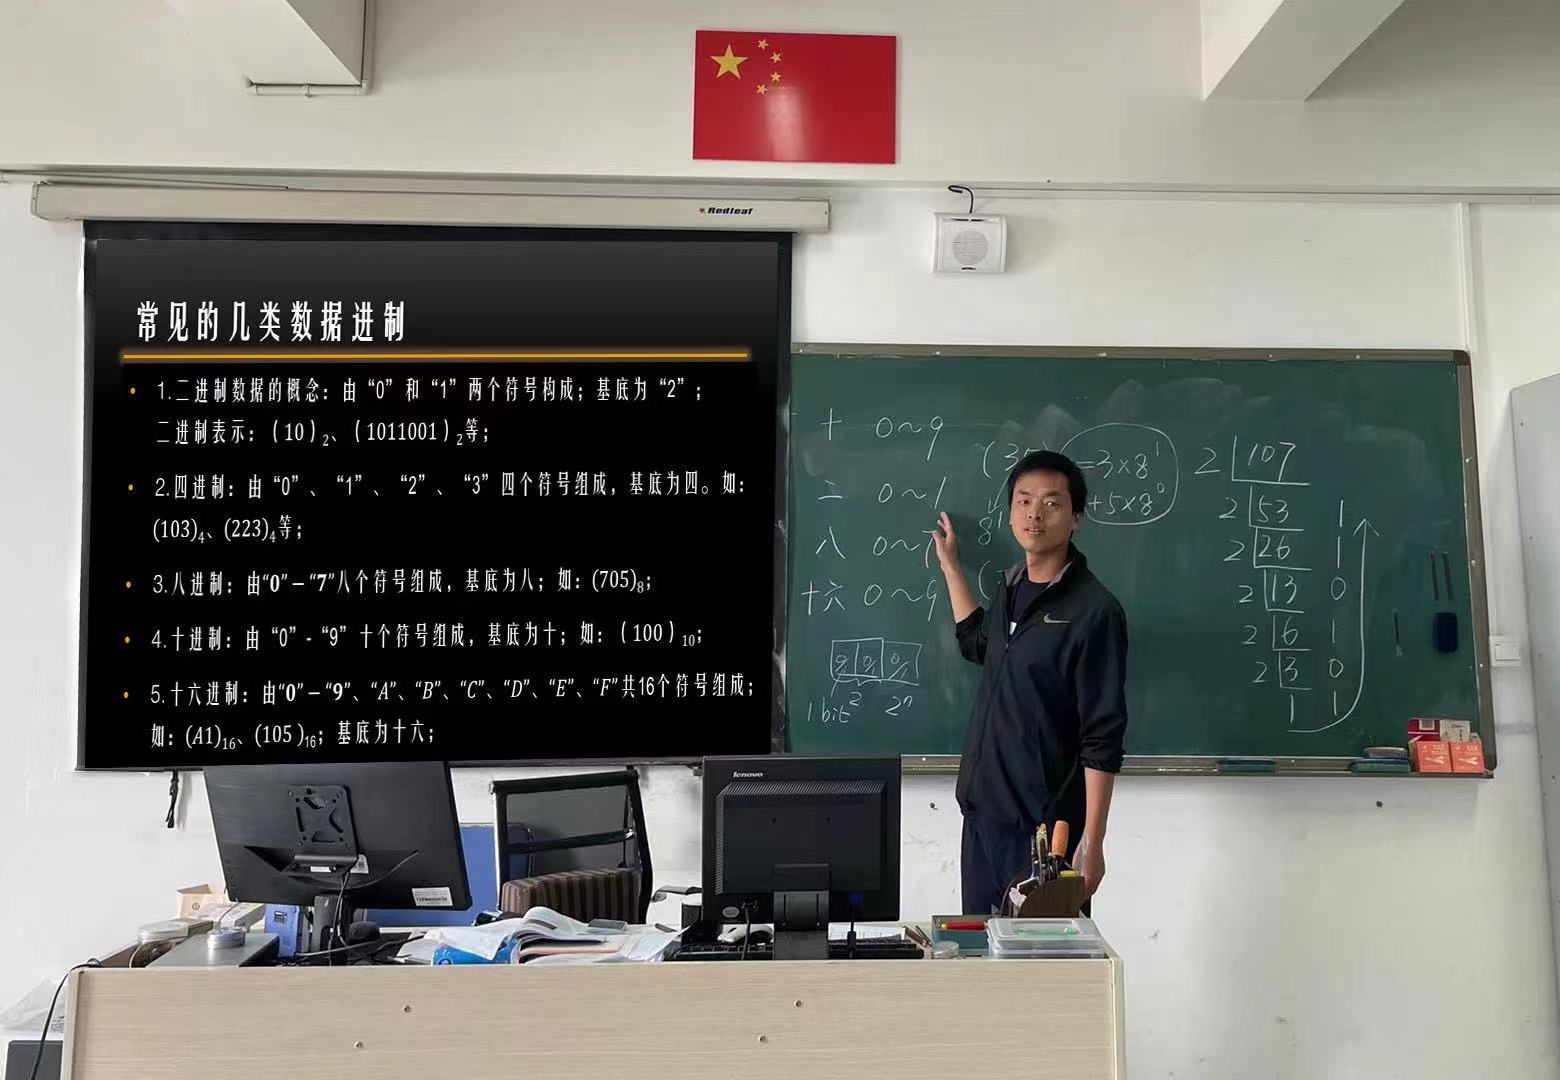 Redleaf
常见的几类数据进制
• 1.二进制数据的概念：由“0”和“1”两个符号构成；基底为“2”；
二进制表示：（10）₂、（1011001）₂等；
• 2.四进制：由“0”、“1”、“2”、“3”四个符号组成，基底为四。如：
(103)₄、(223)₄等；
• 3.八进制：由“0”–“7”八个符号组成，基底为八；如：(705)₈；
• 4.十进制：由“0”-“9”十个符号组成，基底为十；如：（100）₁₀；
• 5.十六进制：由“0”–“9”、“A”、“B”、“C”、“D”、“E”、“F”共16个符号组成；
如：(A1)₁₆、(105)₁₆；基底为十六；
十 0～9
二 0～1
八 0～7
十六 0～9
0/1 0/1 0/1
1 bit 2 2ⁿ
=3×8¹
+5×8⁰
2 107
2 53 1
2 26 1
2 13 0
2 6 1
2 3 0
1 1
lenovo